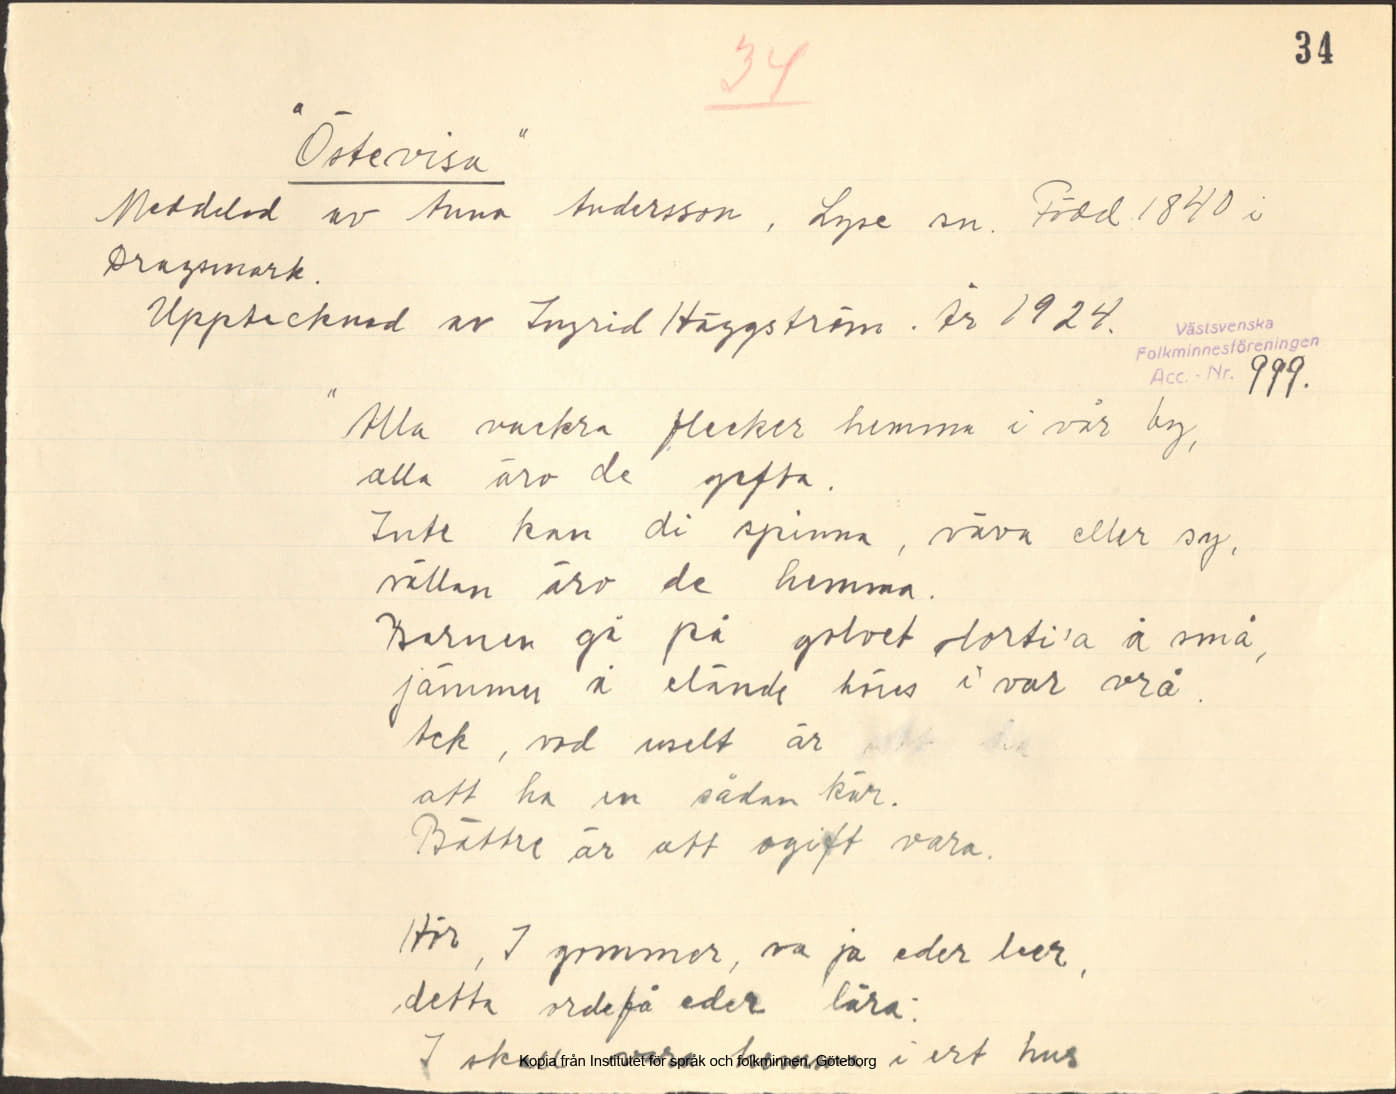 34
34
"Östevisa"
Meddelad av Anna Andersson, Lyse sn. Född 1840 i
Dragsmark.
Upptecknad av Ingrid Häggström. År 1924.
Västsvenska
Folkminnesföreningen
Acc. - Nr. 999.
"Alla vackra flecker hemma i vår by,
alla äro de gefta.
Inte kan di spinna, väva eller sy,
sällan äro de hemma.
Barnen gå på golvet lorti'a å små,
jämmer å elände höres i var vrå.
Ack, vad uselt är
att ha en sådan kär.
Bättre är att ogift vara.
Hör, I gommor, va ja eder beer,
detta orde få eder lära:
I sken vara hemma i ert hus
Kopia från Institutet för språk och folkminnen, Göteborg